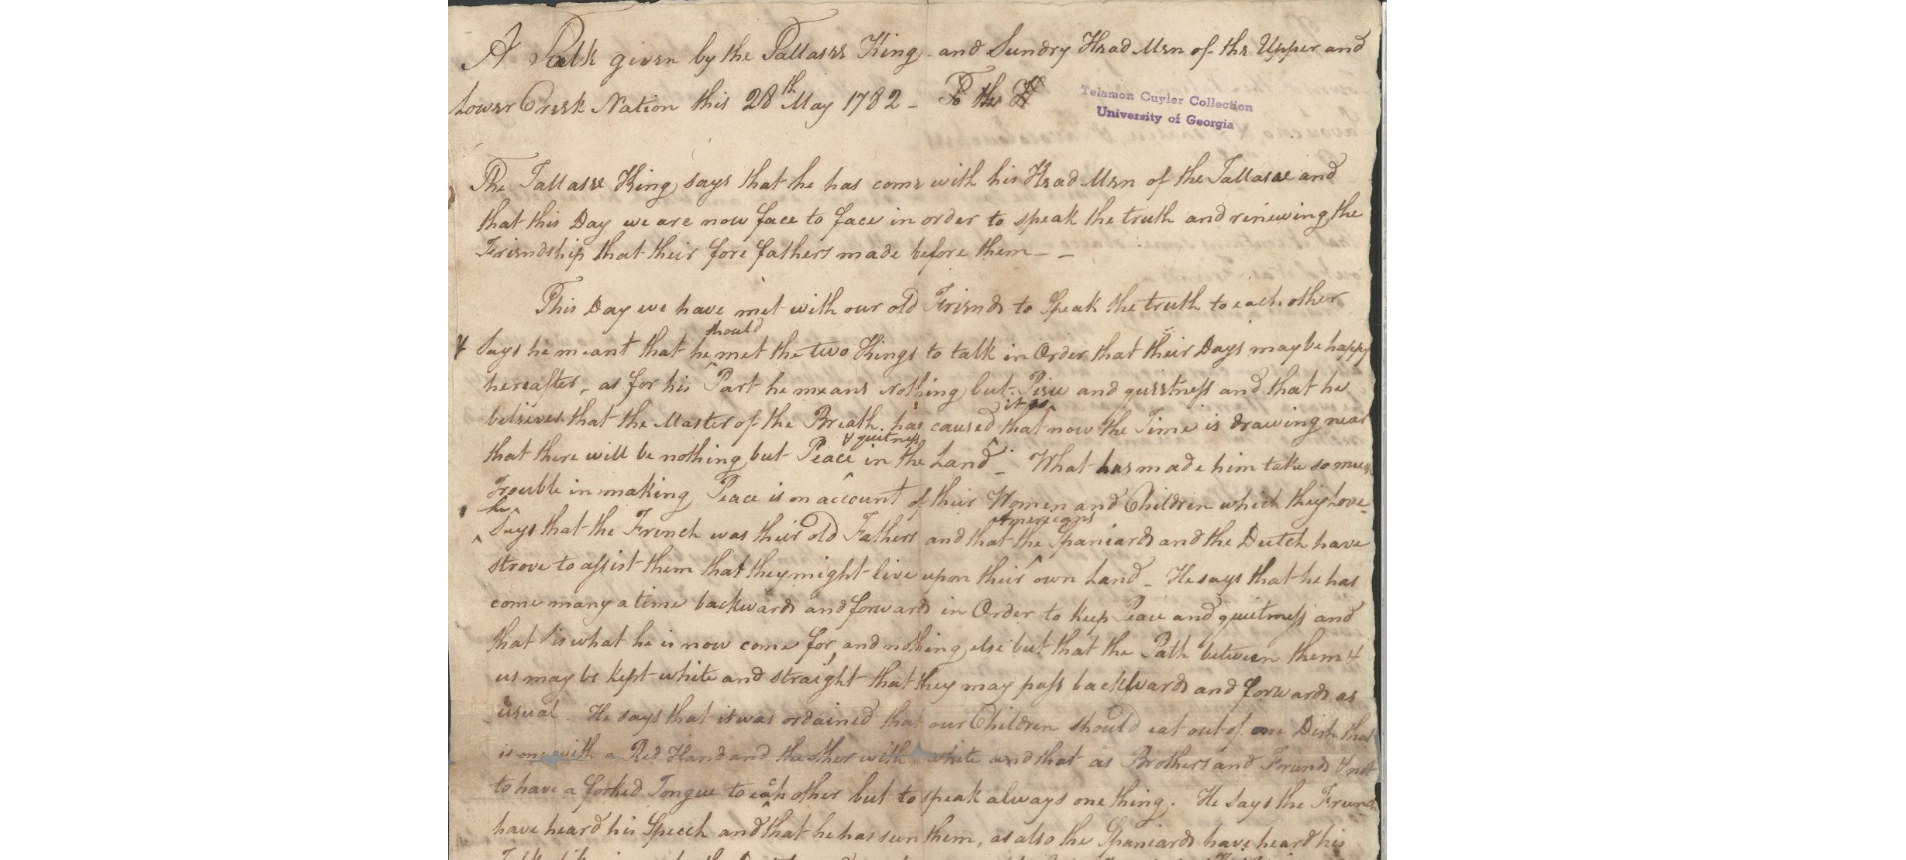 A Talk given by the Tallasee King and Sundry Head Men of the Upper and
Lower Creek Nation this 28th May 1782 - To the H
Telamon Cuyler Collection
University of Georgia
The Tallasee King says that he has come with his Head Men of the Tallasae and
that this Day we are now face to face in order to speak the truth and renewing the
Friendship that their fore fathers made before them - -
This Day we have met with our old Friends to Speak the truth to each other
should
& Says he meant that he met the two Kings to talk in Order that their Days may be happy
hereafter - as for his Part he means nothing but Pisce and quietness and that he
it is
believes that the Master of the Breath has caused that now the Time is drawing near
& quitness
that there will be nothing but Peace in the Land - What has made him take so much
Trouble in making Peace is on account of their Women and Children which they love
he Americans
Says that the French was their old Fathers and that the Spaniards and the Dutch have
strove to assist them that they might live upon their own Land - He says that he has
come many a time backwards and forwards in Order to keep Peace and quietness and
that is what he is now come for, and nothing else but that the Path between them &
us may be kept white and straight that they may pass backwards and forwards as
usual - He says that it was ordained that our Children should eat out of one Dish that
is one with a Red Hand and the other with white and that as Brothers and Friends & not
to have a forked Tongue to each other but to speak always one thing. He says the French
have heard his Speech and that he has seen them, as also the Spaniards have heard his